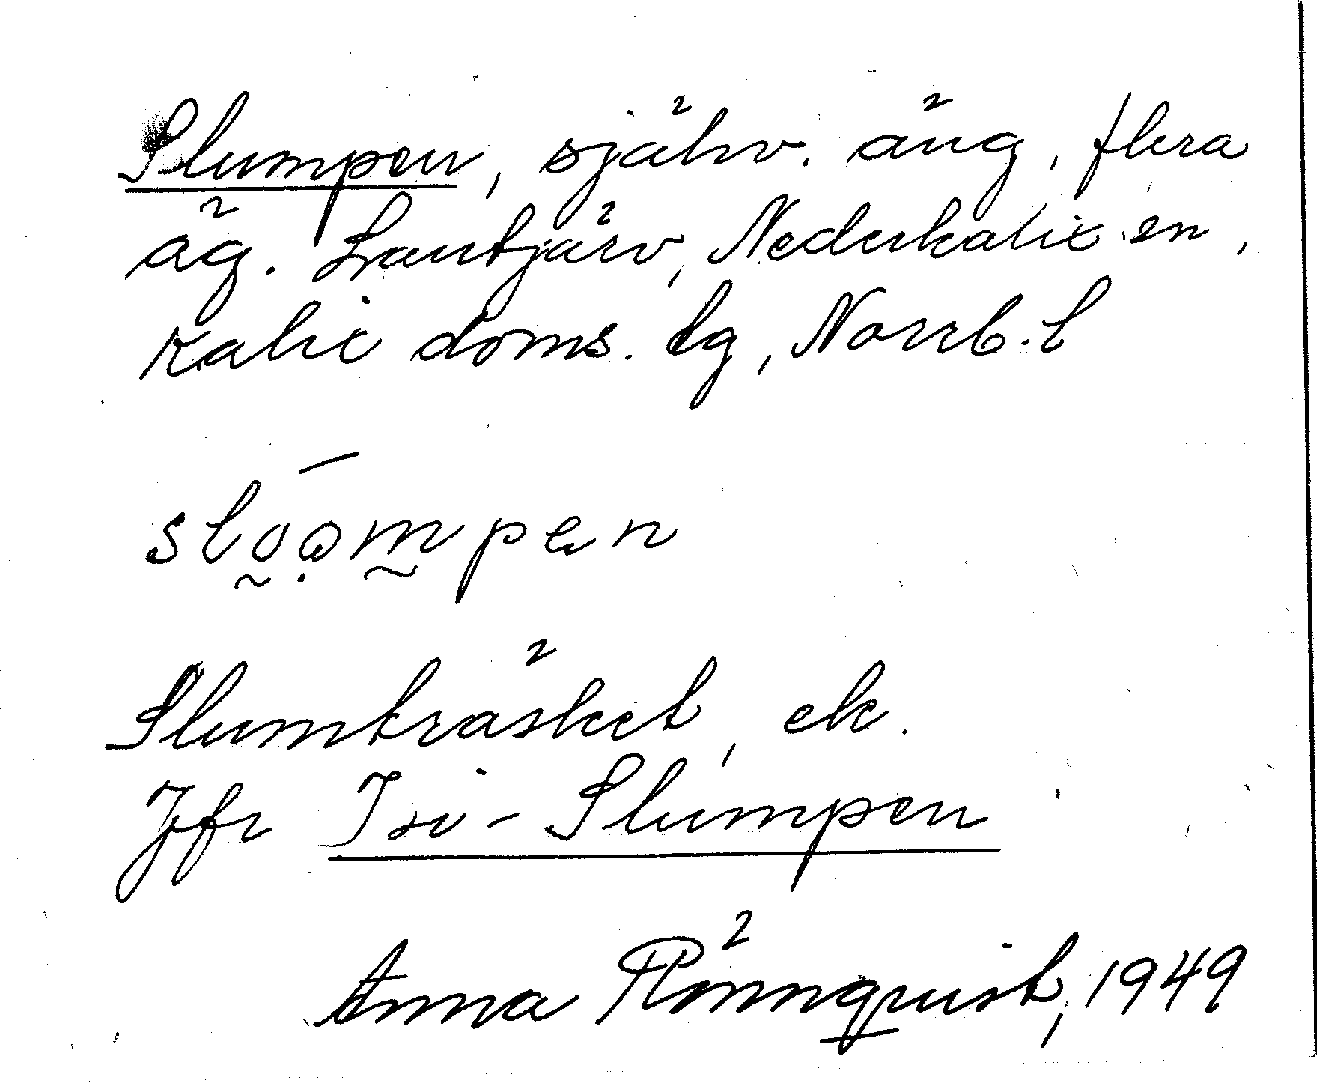 Slumpen, självv. äng, flera
äg. Lantjärv, Nederkalix sn,
Kalix doms. tg, Norrb. l
sloompen
Slumträsket, ek.
Jfr Iso-Slumpen
Anna Rönnquist, 1949